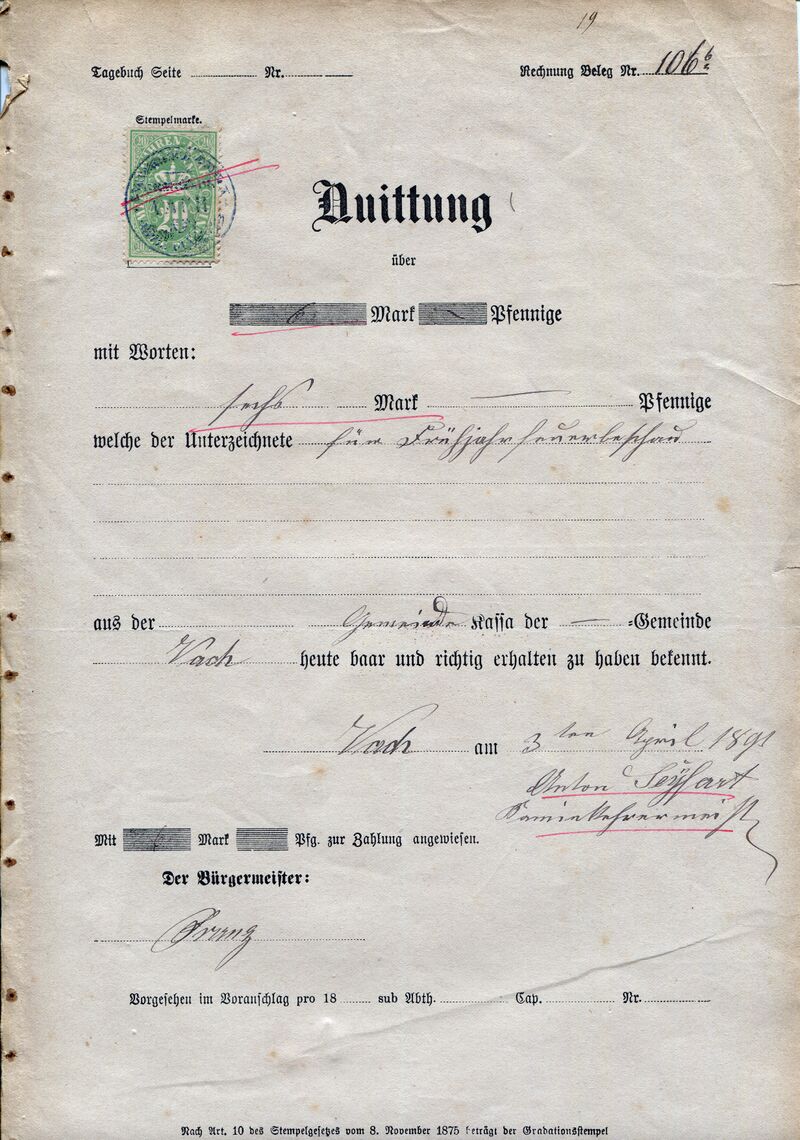 19
Tagebuch Seite ........ Nr. ........ Rechnung Beleg Nr. 106 b
Stempelmarke.
20
Quittung
über
6 Mark — Pfennige
mit Worten:
sechs Mark — Pfennige
welche der Unterzeichnete für Frühjahrfeuerbeschau
aus der Gemeinde Kassa der — =Gemeinde
Vach heute baar und richtig erhalten zu haben bekennt.
Vach am 3ten April 1891
Anton Seyfart
Kaminkehrermeist
Mit 6 Mark Pfg. zur Zahlung angewiesen.
Der Bürgermeister:
Vorgesehen im Voranschlag pro 18 ........ sub Abth. ........ Cap. ........ Nr. ........
Nach Art. 10 des Stempelgesetzes vom 8. November 1875 beträgt der Gradationsstempel